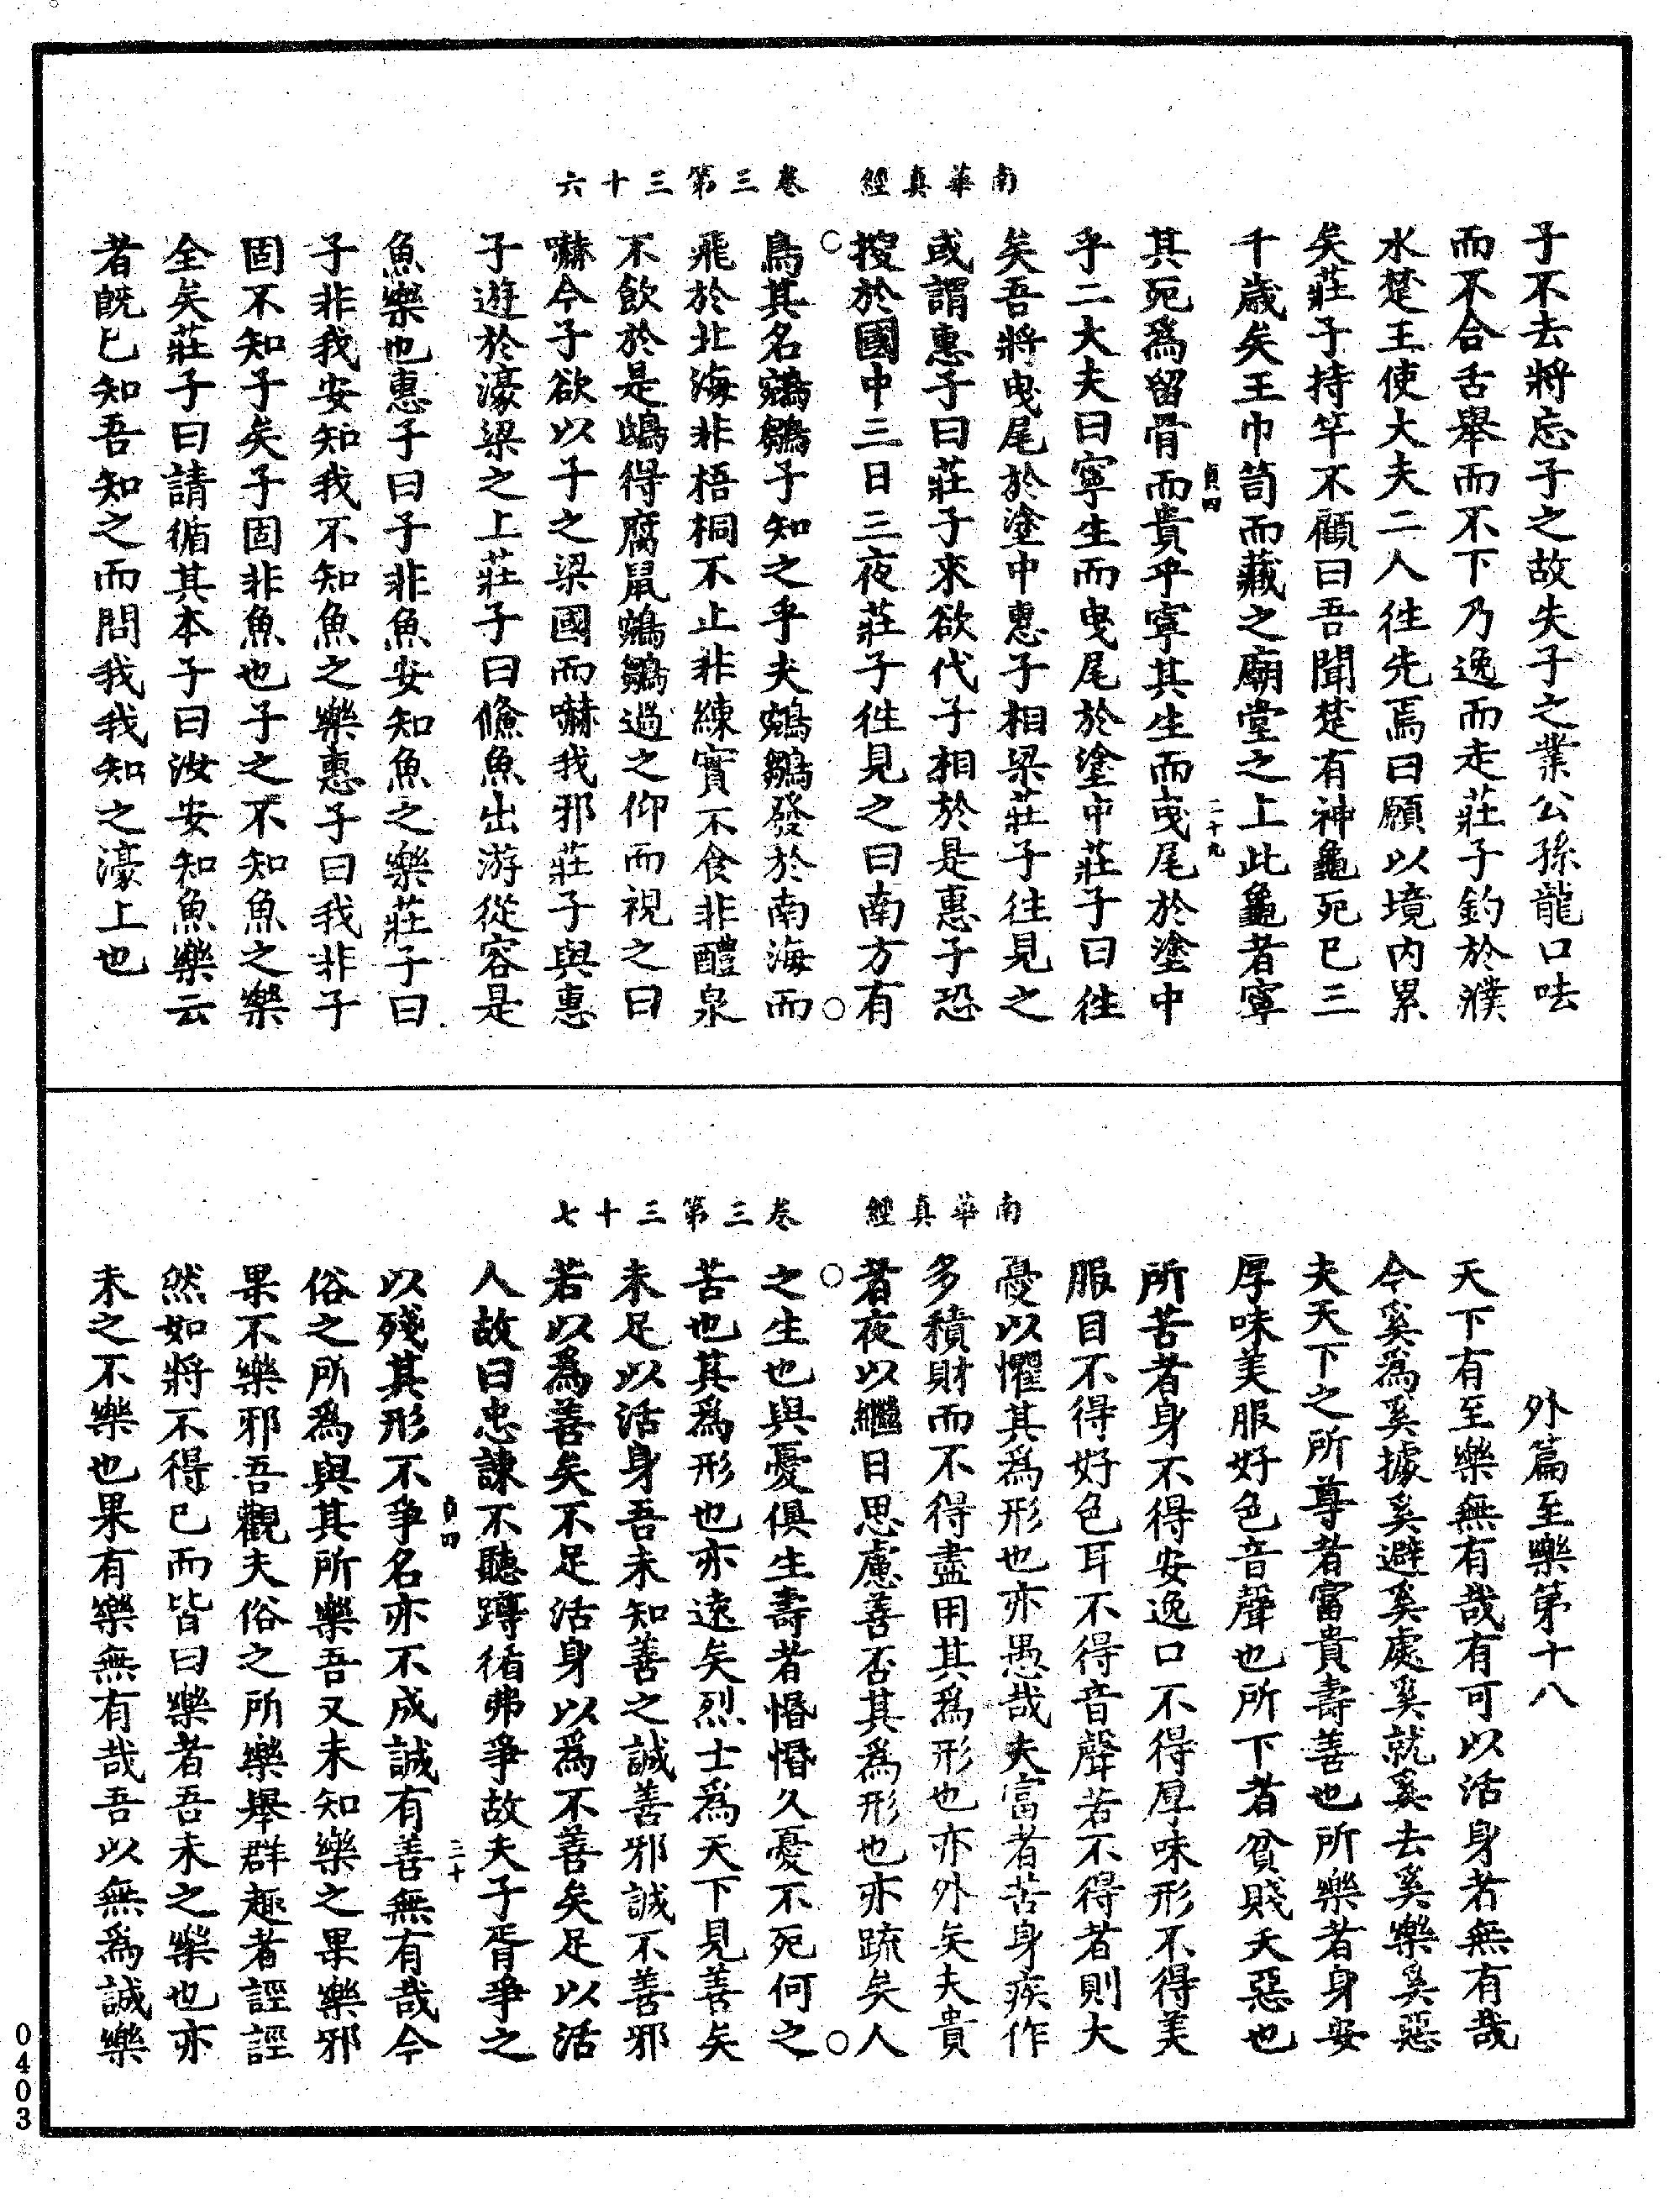 南華真經　卷三第三十六
子不去將忘子之故失子之業公孫龍口呿
而不合舌舉而不下乃逸而走莊子釣於濮
水楚王使大夫二人往先焉曰願以境內累
矣莊子持竿不顧曰吾聞楚有神龜死已三
千歲矣王巾笥而藏之廟堂之上此龜者寧
貞四　二十九
其死爲留骨而貴乎寧其生而曳尾於塗中
乎二大夫曰寧生而曳尾於塗中莊子曰往
矣吾將曳尾於塗中惠子相梁莊子往見之
或謂惠子曰莊子來欲代子相於是惠子恐
搜於國中三日三夜莊子往見之曰南方有
鳥其名鵷鶵子知之乎夫鵷鶵發於南海而
飛於北海非梧桐不止非練實不食非醴泉
不飲於是鴟得腐鼠鵷鶵過之仰而視之曰
嚇今子欲以子之梁國而嚇我邪莊子與惠
子遊於濠梁之上莊子曰儵魚出游從容是
魚樂也惠子曰子非魚安知魚之樂莊子曰
子非我安知我不知魚之樂惠子曰我非子
固不知子矣子固非魚也子之不知魚之樂
全矣莊子曰請循其本子曰汝安知魚樂云
者既已知吾知之而問我我知之濠上也
南華真經　卷三第三十七
外篇至樂第十八
天下有至樂無有哉有可以活身者無有哉
今奚爲奚據奚避奚處奚就奚去奚樂奚惡
夫天下之所尊者富貴壽善也所樂者身安
厚味美服好色音聲也所下者貧賤夭惡也
所苦者身不得安逸口不得厚味形不得美
服目不得好色耳不得音聲若不得者則大
憂以懼其爲形也亦愚哉夫富者苦身疾作
多積財而不得盡用其爲形也亦外矣夫貴
者夜以繼日思慮善否其爲形也亦疏矣人
之生也與憂俱生壽者惛惛久憂不死何之
苦也其爲形也亦遠矣烈士爲天下見善矣
未足以活身吾未知善之誠善邪誠不善邪
若以爲善矣不足活身以爲不善矣足以活
人故曰忠諫不聽蹲循弗爭故夫子胥爭之
貞四　三十
以殘其形不爭名亦不成誠有善無有哉今
俗之所爲與其所樂吾又未知樂之果樂邪
果不樂邪吾觀夫俗之所樂舉群趣者誙誙
然如將不得已而皆曰樂者吾未之樂也亦
未之不樂也果有樂無有哉吾以無爲誠樂
0403